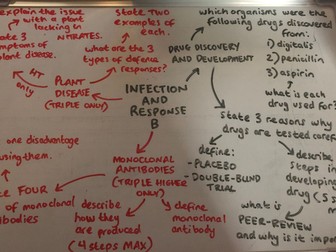 explain the issue
with a plant
lacking in
NITRATES.
state 3
symptoms of
plant disease.
HT
only
PLANT
DISEASE
(TRIPLE ONLY)
state TWO
examples of
each.
what are the 3
types of defence
responses?
INFECTION
AND
RESPONSE
B
DRUG DISCOVERY
AND DEVELOPMENT
which organisms were the
following drugs discovered
from:
1) digitalis
2) penicillin
3) aspirin
what is each
drug used for?
state 3 reasons why
drugs are tested
define:
-PLACEBO
-DOUBLE-BLIND
TRIAL
describe
steps in
developing
drug (5
what is
PEER-REVIEW
and why is it
MONOCLONAL
ANTIBODIES
(TRIPLE HIGHER
ONLY)
define
monoclonal
antibody
describe
how they
are produced
(4 steps MAX)
one disadvantage
using them.
FOUR
of monoclonal
antibodies